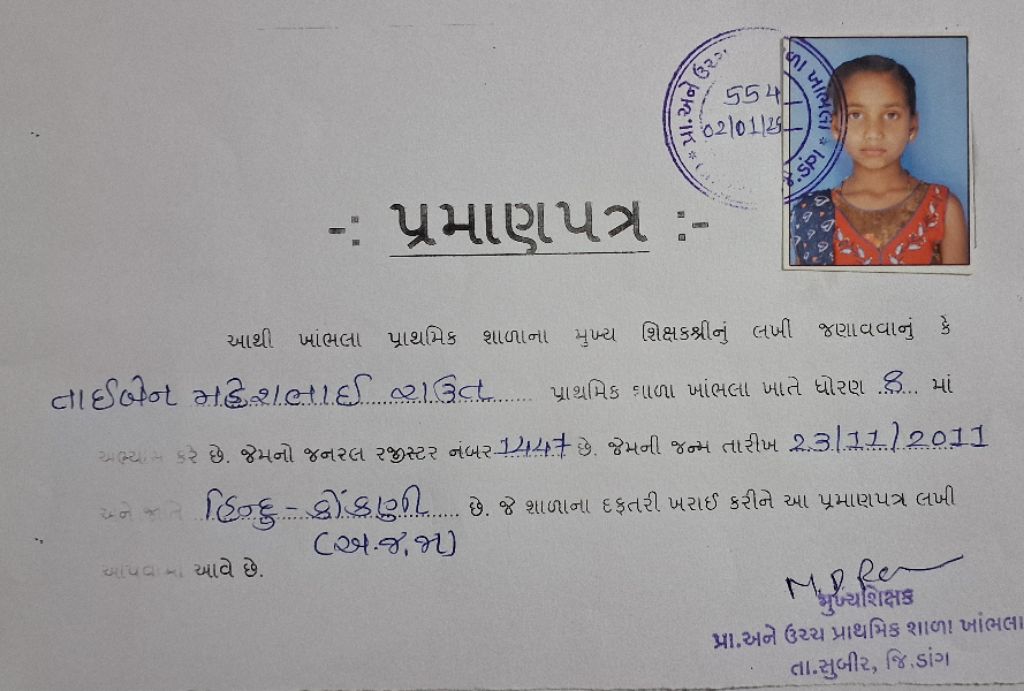 પ્રા.અને ઉચ્ચ
ળા ખાંભલા
554
02/01/25
-: પ્રમાણપત્ર :-
આથી ખાંભલા પ્રાથમિક શાળાના મુખ્ય શિક્ષકશ્રીનું લખી જણાવવાનું કે
તાઈબેન મહેશભાઈ રાઉત પ્રાથમિક શાળા ખાંભલા ખાતે ધોરણ 8 માં
અભ્યાસ કરે છે. જેમનો જનરલ રજીસ્ટર નંબર 1447 છે. જેમની જન્મ તારીખ 23/11/2011
અને જાતે હિન્દુ - કોંકણી છે. જે શાળાના દફતરી ખરાઈ કરીને આ પ્રમાણપત્ર લખી
(અ.જ.જા)
આપવામાં આવે છે.
મુખ્યશિક્ષક
પ્રા.અને ઉચ્ચ પ્રાથમિક શાળા ખાંભલા
તા.સુબીર, જિ.ડાંગ